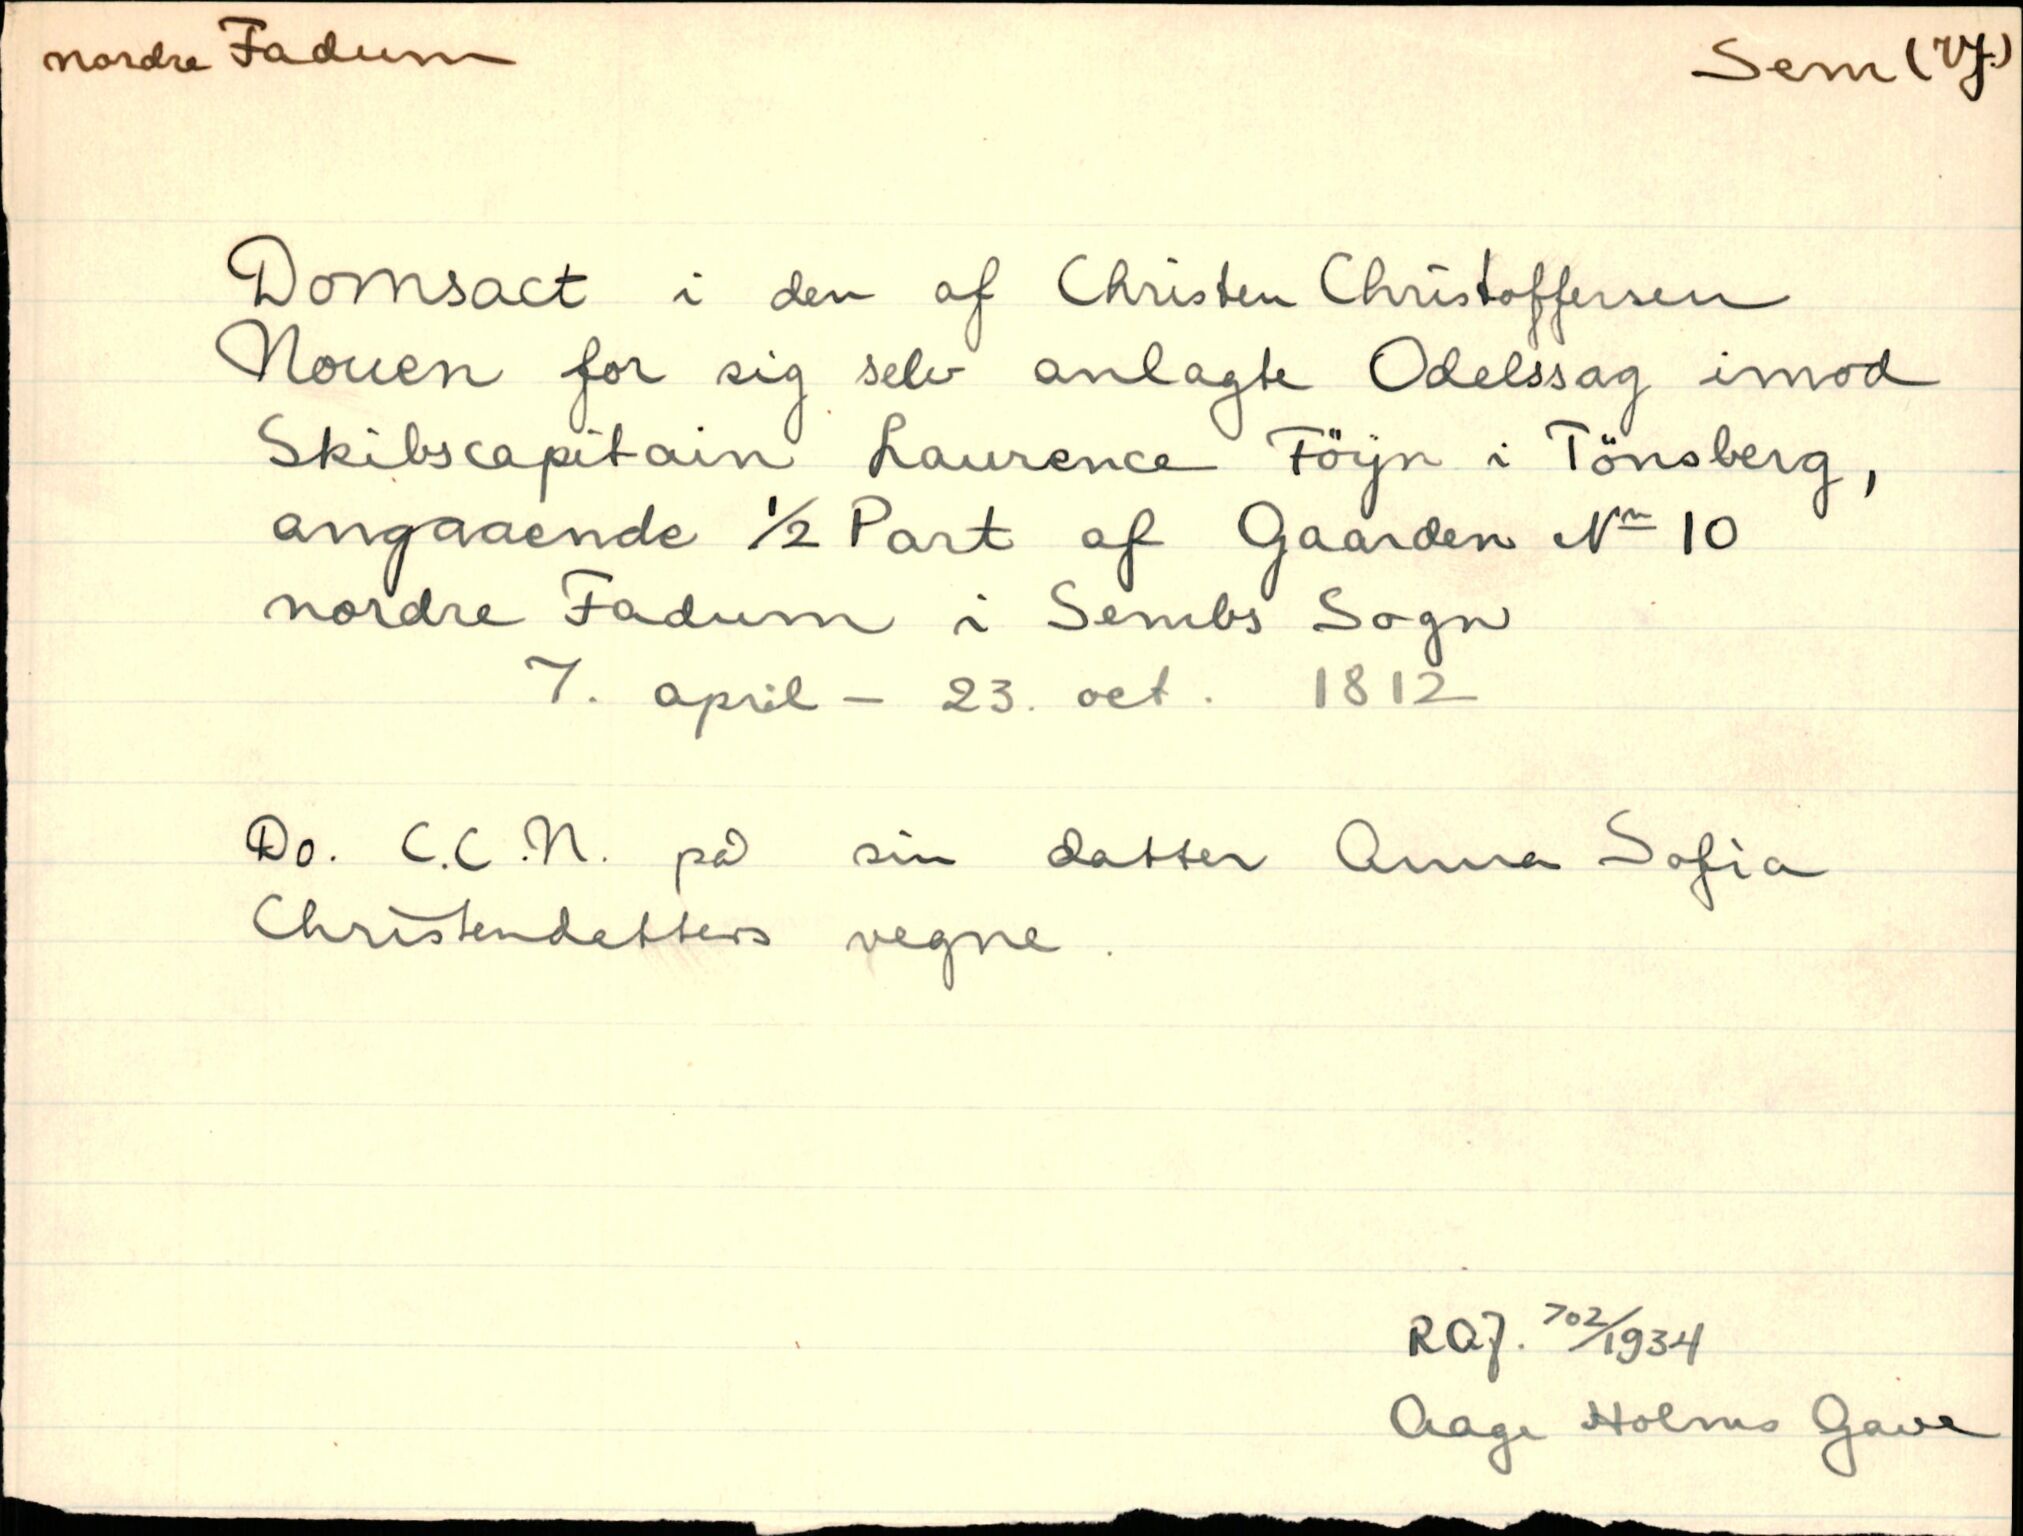 nordre Fadum Sem (Vf.)
Domsact i den af Christen Christoffersen
Nouen for sig selv anlagte Odelssag imod
Skibscapitain Laurence Föÿn i Tönsberg,
angaaende 1/2 Part af Gaarden Nr 10
nordre Fadum i Sembs Sogn
7. april - 23. oct. 1812
Do. C.C.N. på sin datter Anna Sofia
Christendatters vegne.
RAJ. 702/1934
Aage Holms Gave